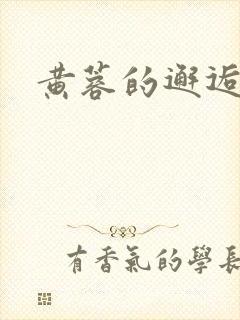 黄蓉的邂逅
有香氣的學長